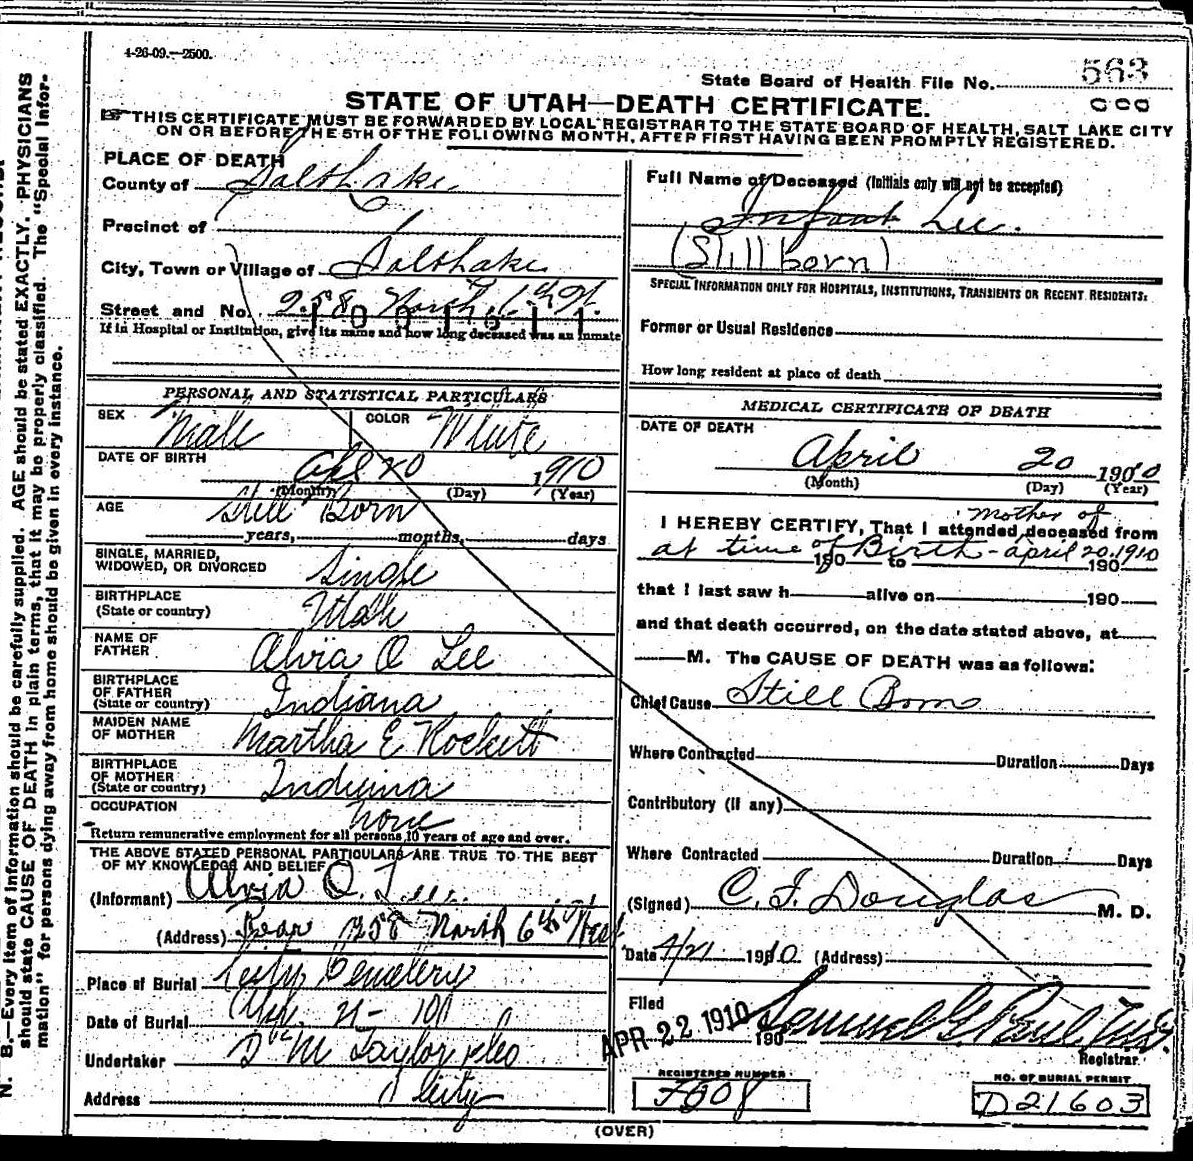 4-26-09.—2500.
State Board of Health File No. 563
STATE OF UTAH—DEATH CERTIFICATE.
THIS CERTIFICATE MUST BE FORWARDED BY LOCAL REGISTRAR TO THE STATE BOARD OF HEALTH, SALT LAKE CITY
ON OR BEFORE THE 5TH OF THE FOLLOWING MONTH, AFTER FIRST HAVING BEEN PROMPTLY REGISTERED.
PLACE OF DEATH
County of Salt Lake
Precinct of
City, Town or Village of Salt Lake
Street and No. 258 North 6th
If in Hospital or Institution, give its name and how long deceased was an inmate
PERSONAL AND STATISTICAL PARTICULARS
SEX Male COLOR White
DATE OF BIRTH Apl 20 1910
(Month) (Day) (Year)
AGE Still Born
years, months, days
SINGLE, MARRIED,
WIDOWED, OR DIVORCED Single
BIRTHPLACE
(State or country) Utah
NAME OF
FATHER Alvia O Lee
BIRTHPLACE
OF FATHER
(State or country) Indiana
MAIDEN NAME
OF MOTHER Martha E Rockett
BIRTHPLACE
OF MOTHER
(State or country) Indiana
OCCUPATION none
Return remunerative employment for all persons 10 years of age and over.
THE ABOVE STATED PERSONAL PARTICULARS ARE TRUE TO THE BEST
OF MY KNOWLEDGE AND BELIEF
(Informant) Alvia O. Lee
(Address) Rear 258 North 6th West
Place of Burial City Cemetery
Date of Burial 21-
Undertaker Taylor
Address City
Full Name of Deceased (Initials only will not be accepted)
Infant Lee.
(Stillborn)
SPECIAL INFORMATION ONLY FOR HOSPITALS, INSTITUTIONS, TRANSIENTS OR RECENT RESIDENTS:
Former or Usual Residence
How long resident at place of death
MEDICAL CERTIFICATE OF DEATH
DATE OF DEATH
April 20 1910
(Month) (Day) (Year)
mother of
I HEREBY CERTIFY, That I attended deceased from
at time of Birth - april 20, 1910
190 to 190
that I last saw h alive on 190
and that death occurred, on the date stated above, at
M. The CAUSE OF DEATH was as follows:
Chief Cause Still Born
Where Contracted Duration Days
Contributory (if any)
Where Contracted Duration Days
(Signed) C. F. Douglas M. D.
Date 4/21 1910 (Address)
Filed APR 22 1910 190
Registrar
REGISTERED NUMBER
NO. OF BURIAL PERMIT
D21603
(OVER)
N. B.—Every item of information should be carefully supplied. AGE should be stated EXACTLY. PHYSICIANS
should state CAUSE OF DEATH in plain terms, that it may be properly classified. The "Special Infor-
mation" for persons dying away from home should be given in every instance.